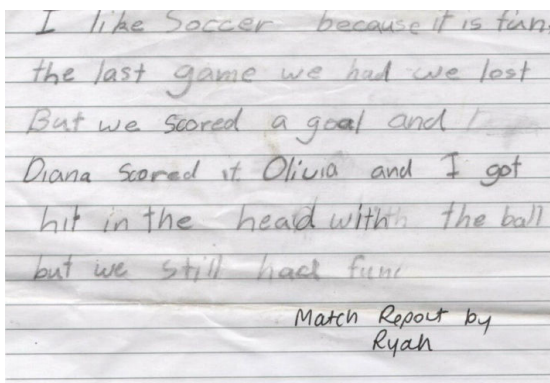 I like Soccer because it is fun.
the last game we had we lost
But we scored a goal and
Diana scored it Olivia and I got
hit in the head with the ball
but we still had fun
Match Report by
Ryah